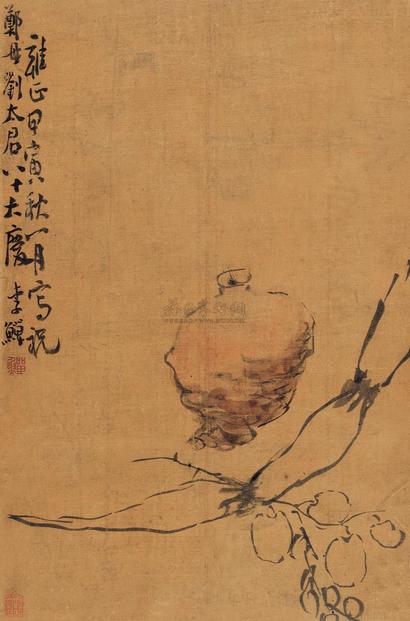 雍正甲寅秋八月寫祝
鄭母劉太君八十大慶 李鱓